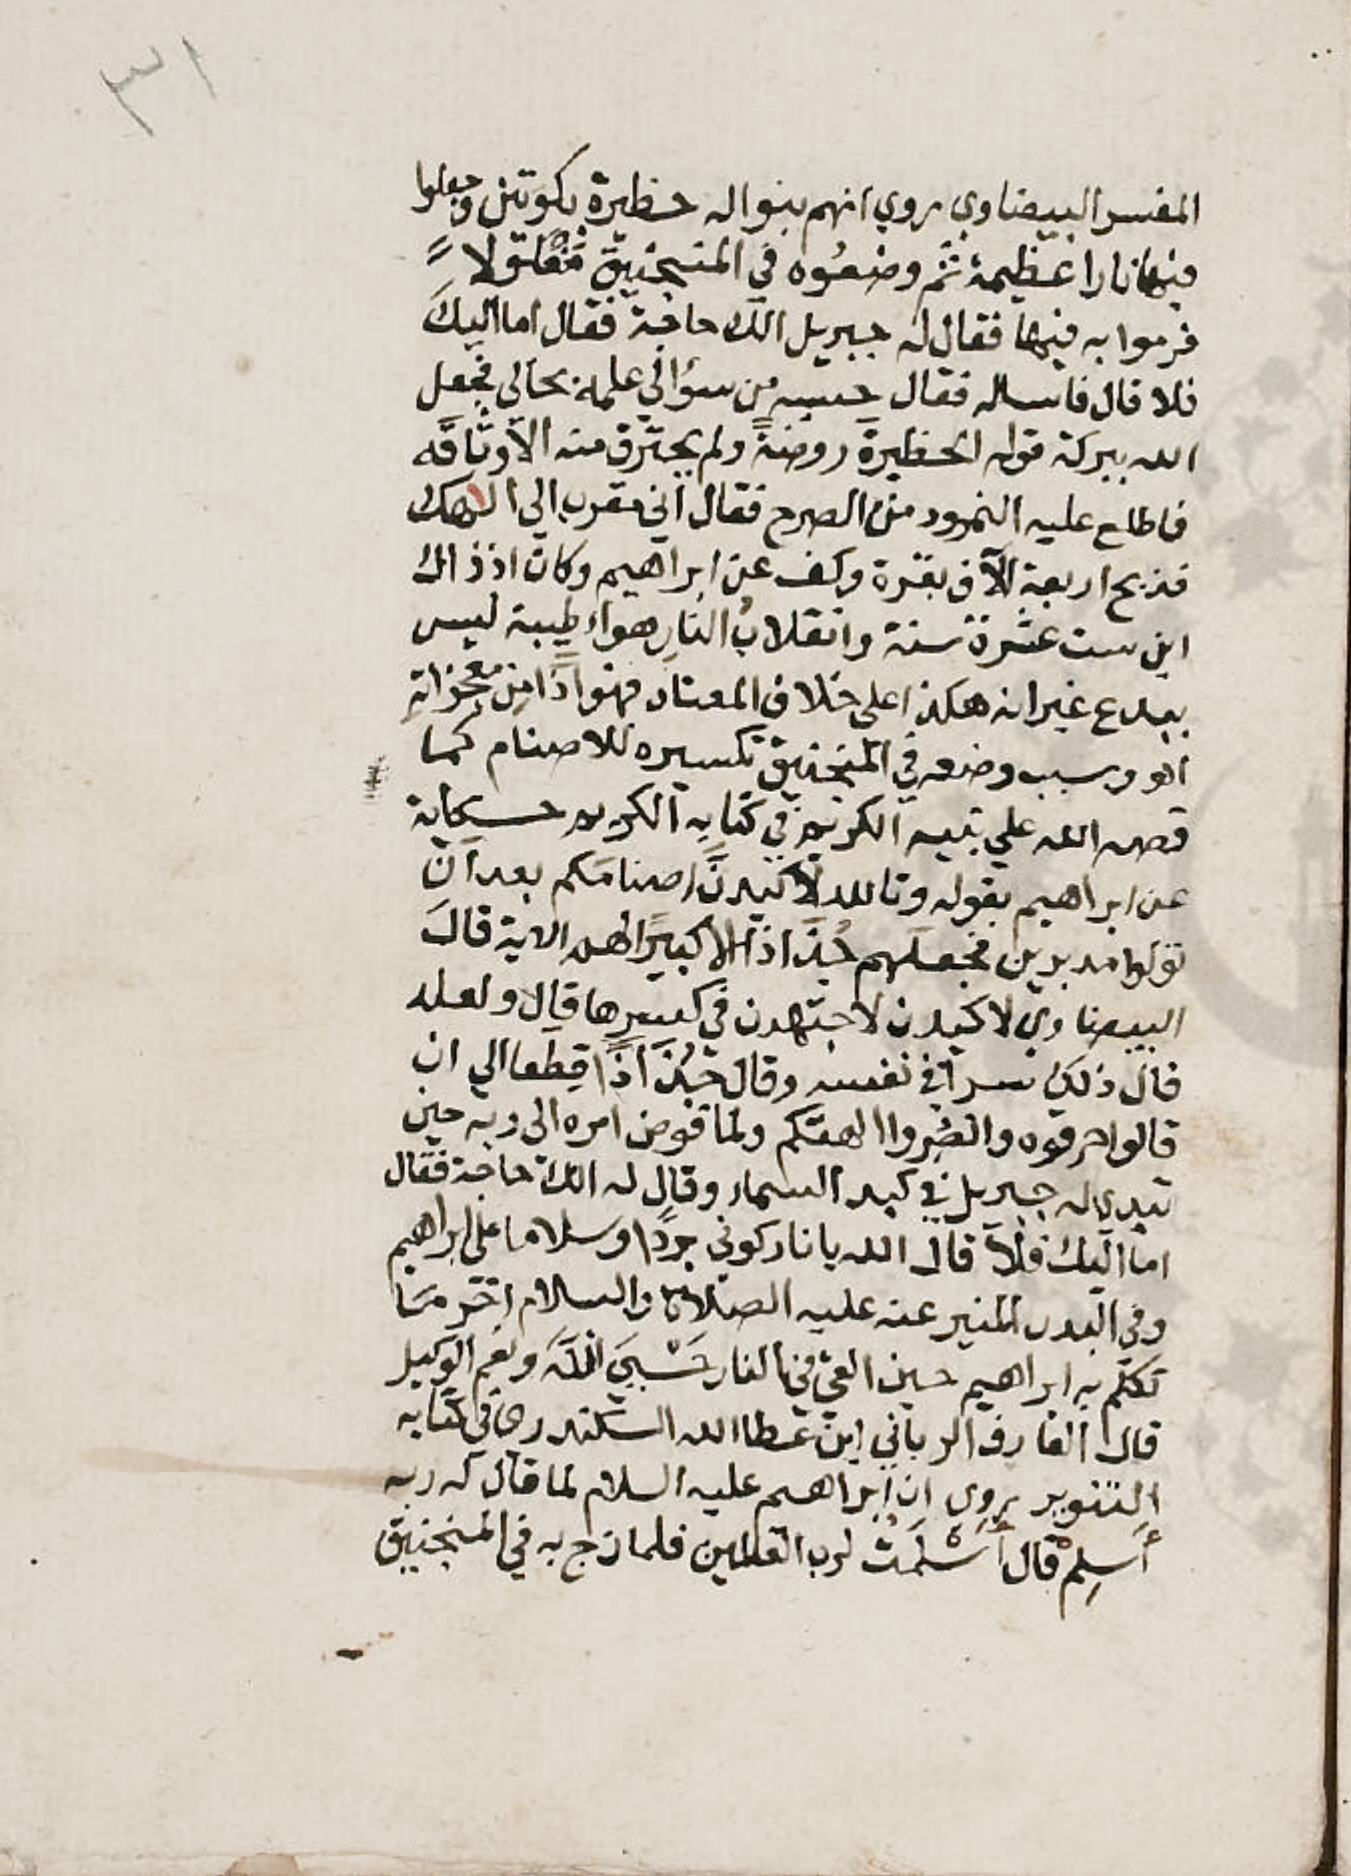 ٣١
المفسر البيضاوي روي انهم بنوا له حظيرة بكوثى وجعلوا
فيها نارا عظيمة ثم وضعوه في المنجنيق مغلولا
فرموا به فيها فقال له جبريل الك حاجة فقال اما اليك
فلا قال فاساله فقال حسبه من سؤالي علمه بحالي فجعل
الله ببركة قوله الحظيرة روضة ولم يحترق منه الا وثاقه
فاطلع عليه النمرود من الصرح فقال اني مقرب الي الاهك
فذبح اربعة آلاف بقرة وكف عن ابراهيم وكان اذ ذاك
ابن ست عشرة سنة وانقلاب النار هواء طيبة ليس
ببدع غير انه هكذا على خلاف المعتاد فهو اذا من معجزاته
اهو وسبب وضعه في المنجنيق تكسيره للاصنام كما
قصه الله علي نبيه الكريم في كتابه الكريم حكاية
عن ابراهيم بقوله وتالله لأكيدن اصنامكم بعد ان
تولوا مدبرين فجعلهم جُذَاذًا الا كبيرًا لهم الاية قال
البيضاوي لاكيدن لاجتهدن في كسرها قال ولعله
قال ذلك سرا في نفسه وقال جُذَاذًا قِطَعا الي ان
قالوا حرقوه وانصُروا الهتكم ولما فوض امره الى ربه حين
تبدي له جبريل في كبد السماء وقال له الك حاجة فقال
اما اليك فلا قال الله يا نار كوني بردًا وسلاما على ابراهيم
وفي البدر المنير عنه عليه الصلاة والسلام اخر ما
تكلم به ابراهيم حين القي في النار حَسْبِيَ اللهُ ونعم الوكيل
قال العارف الرباني ابن عطا الله السكندري في كتابه
التنوير روي ان ابراهيم عليه السلام لما قال له ربه
أَسلِمْ قال أَسْلَمْتُ لرب العالمين فلما زج به في المنجنيق